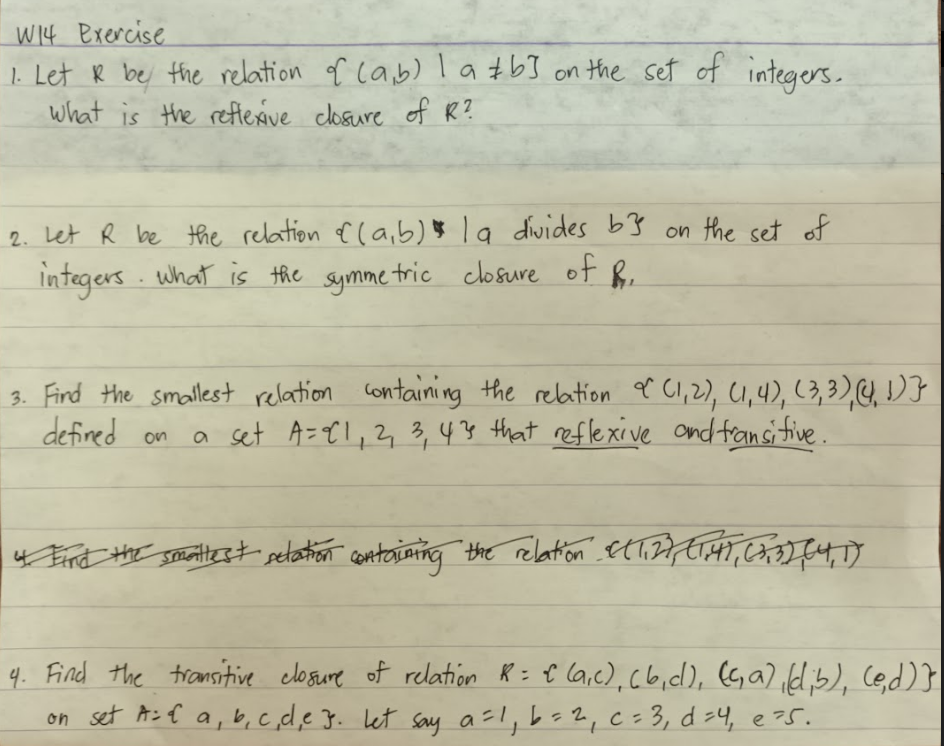 W14 Exercise
1. Let R be the relation {(a,b) | a ≠ b} on the set of integers.
What is the reflexive closure of R?
2. Let R be the relation {(a,b) | a divides b} on the set of
integers. What is the symmetric closure of R.
3. Find the smallest relation containing the relation {(1,2), (1,4), (3,3), (4,1)}
defined on a set A={1, 2, 3, 4} that reflexive and transitive.
4. Find the smallest relation containing the relation {(1,2), (1,4), (3,3), (4,1)
4. Find the transitive closure of relation R = {(a,c), (b,d), (c,a), (d,b), (e,d)}
on set A={a, b, c, d, e}. Let say a=1, b=2, c=3, d=4, e=5.